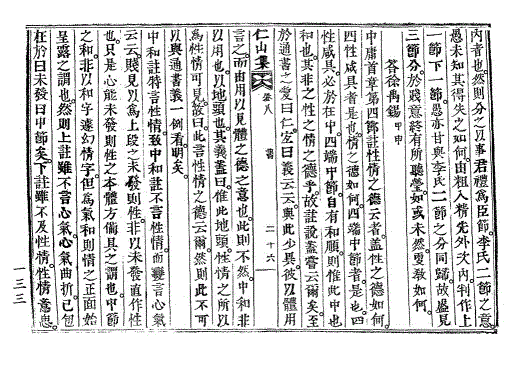 內者也然則分之以事君禮爲臣節李氏二節之意
愚未知其得失之如何由粗入精先外次內判作上
一節下一節愚亦甘與李氏二節之分同歸故盛見
三節分於賤意終有所聽瑩如或未然更敎如何
答徐禹錫 甲申
中庸首章第四節註性情之德云者盖性之德如何
四性咸具者是也情之德如何四端中節者是也四
性咸具必於在中四端中節自有和順則惟此中也
和也其非之性之情之德乎故註說盖嘗云爾矣至
於通書之愛曰仁宜曰義云云與此少異彼以體用
仁山集 卷八 書 二十六
言之而由用以見體之德之意也此則不然中和非
以用也以地頭也其義盖曰惟此地頭性情之所以
爲性情可見故曰此言性情之德云爾然則此不可
以與通書義一例看明矣
中和註言性情致中和註不言性情而變言心氣
云云賤見以爲上段之未發則性非以未發直作性
也只是心能未發則性之本體方備具之謂也中節
之和非以和字遽幻情字但爲氣和則情之正面始
呈露之謂也然則上註雖不言心氣心氣曲折已包
在於曰未發曰中節矣下註雖不及性情性情意思
一三三